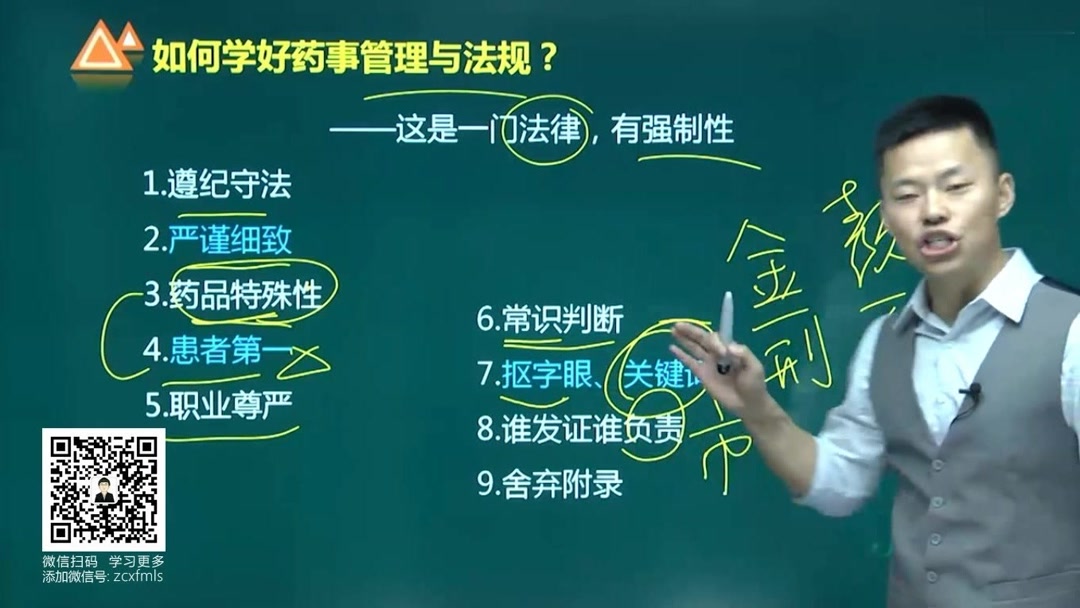 如何学好药事管理与法规？
——这是一门法律，有强制性
1.遵纪守法
2.严谨细致
3.药品特殊性
4.患者第一
5.职业尊严
6.常识判断
7.抠字眼、关键
8.谁发证谁负责
9.舍弃附录
金
刑
市
微信扫码 学习更多
添加微信号: zcxfmls